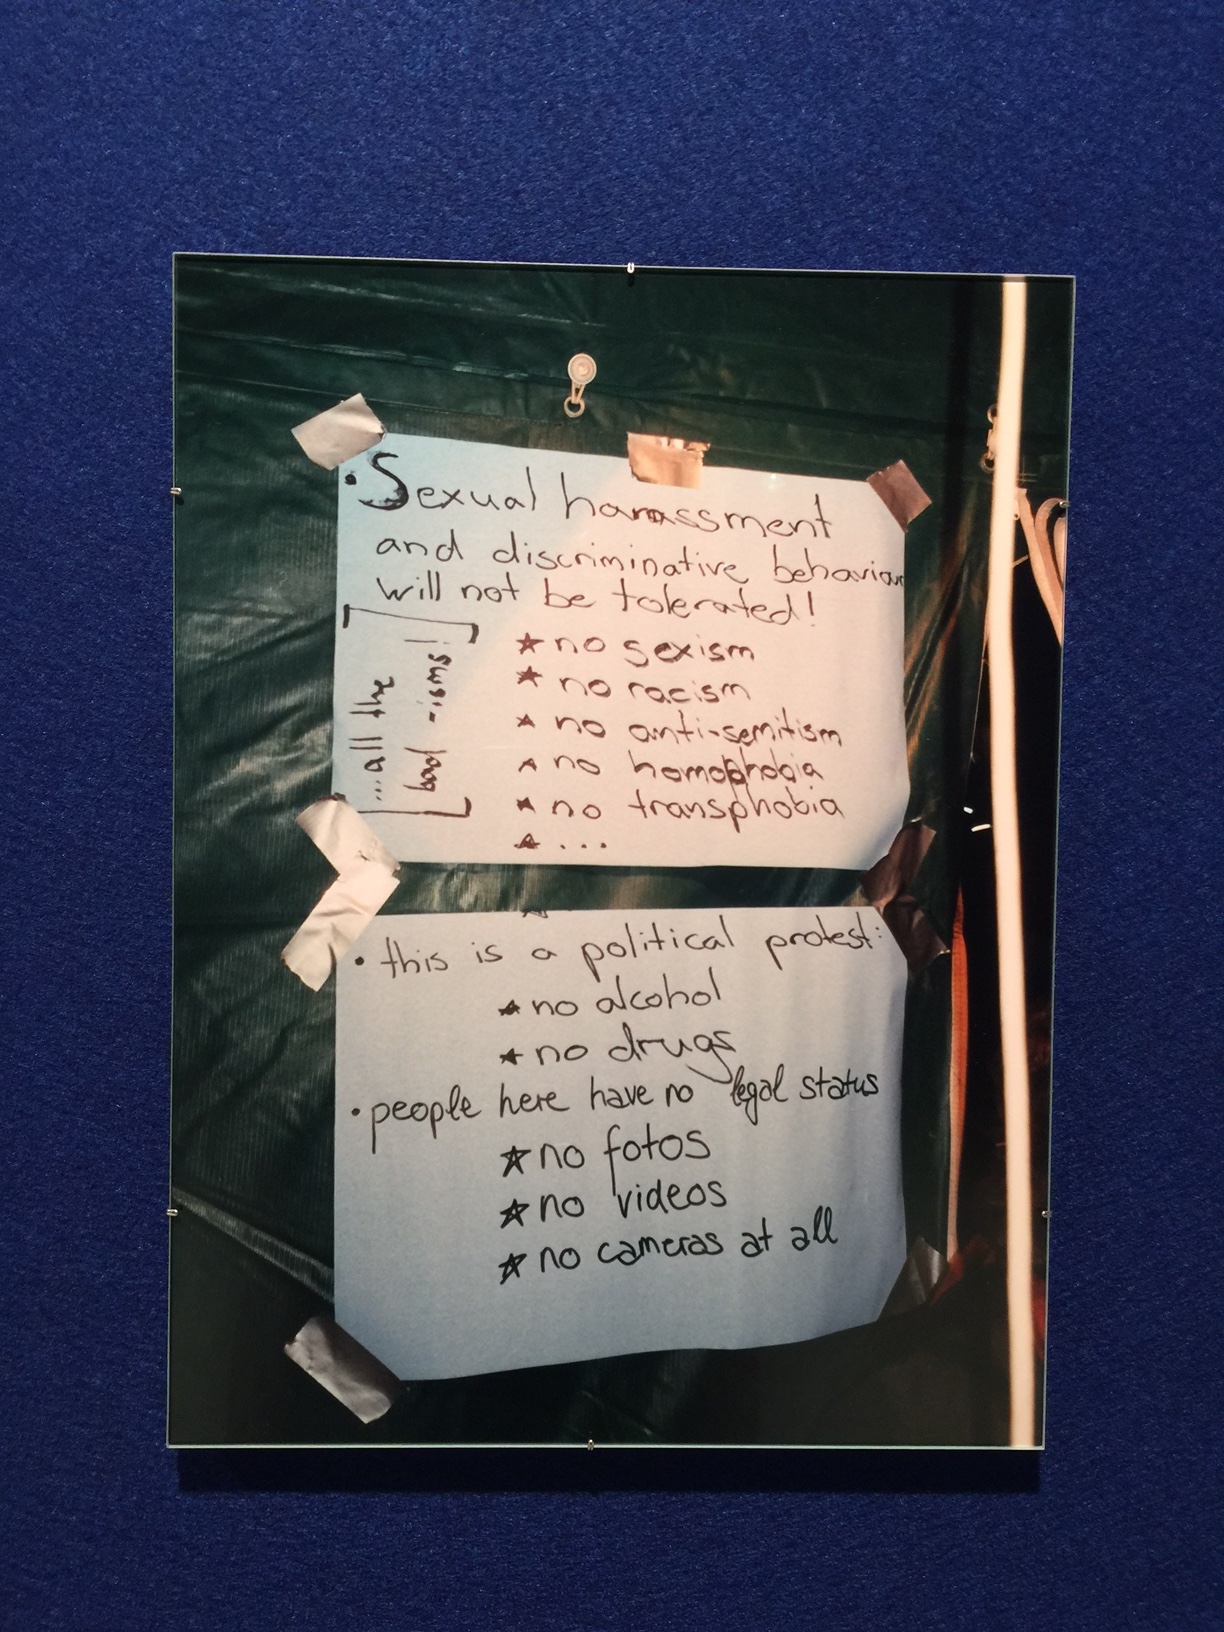 • Sexual harassment
and discriminative behaviour
will not be tolerated!
★ no sexism
★ no racism
★ no anti-semitism
★ no homophobia
★ no transphobia
★ ...
[...all the
bad -isms!]
• this is a political protest:
★ no alcohol
★ no drugs
• people here have no legal status
★ no fotos
★ no videos
★ no cameras at all